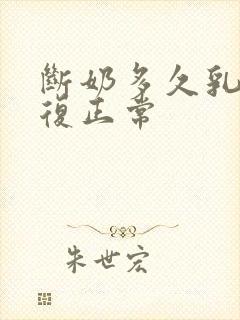 斷奶多久乳
復正常
朱世宏